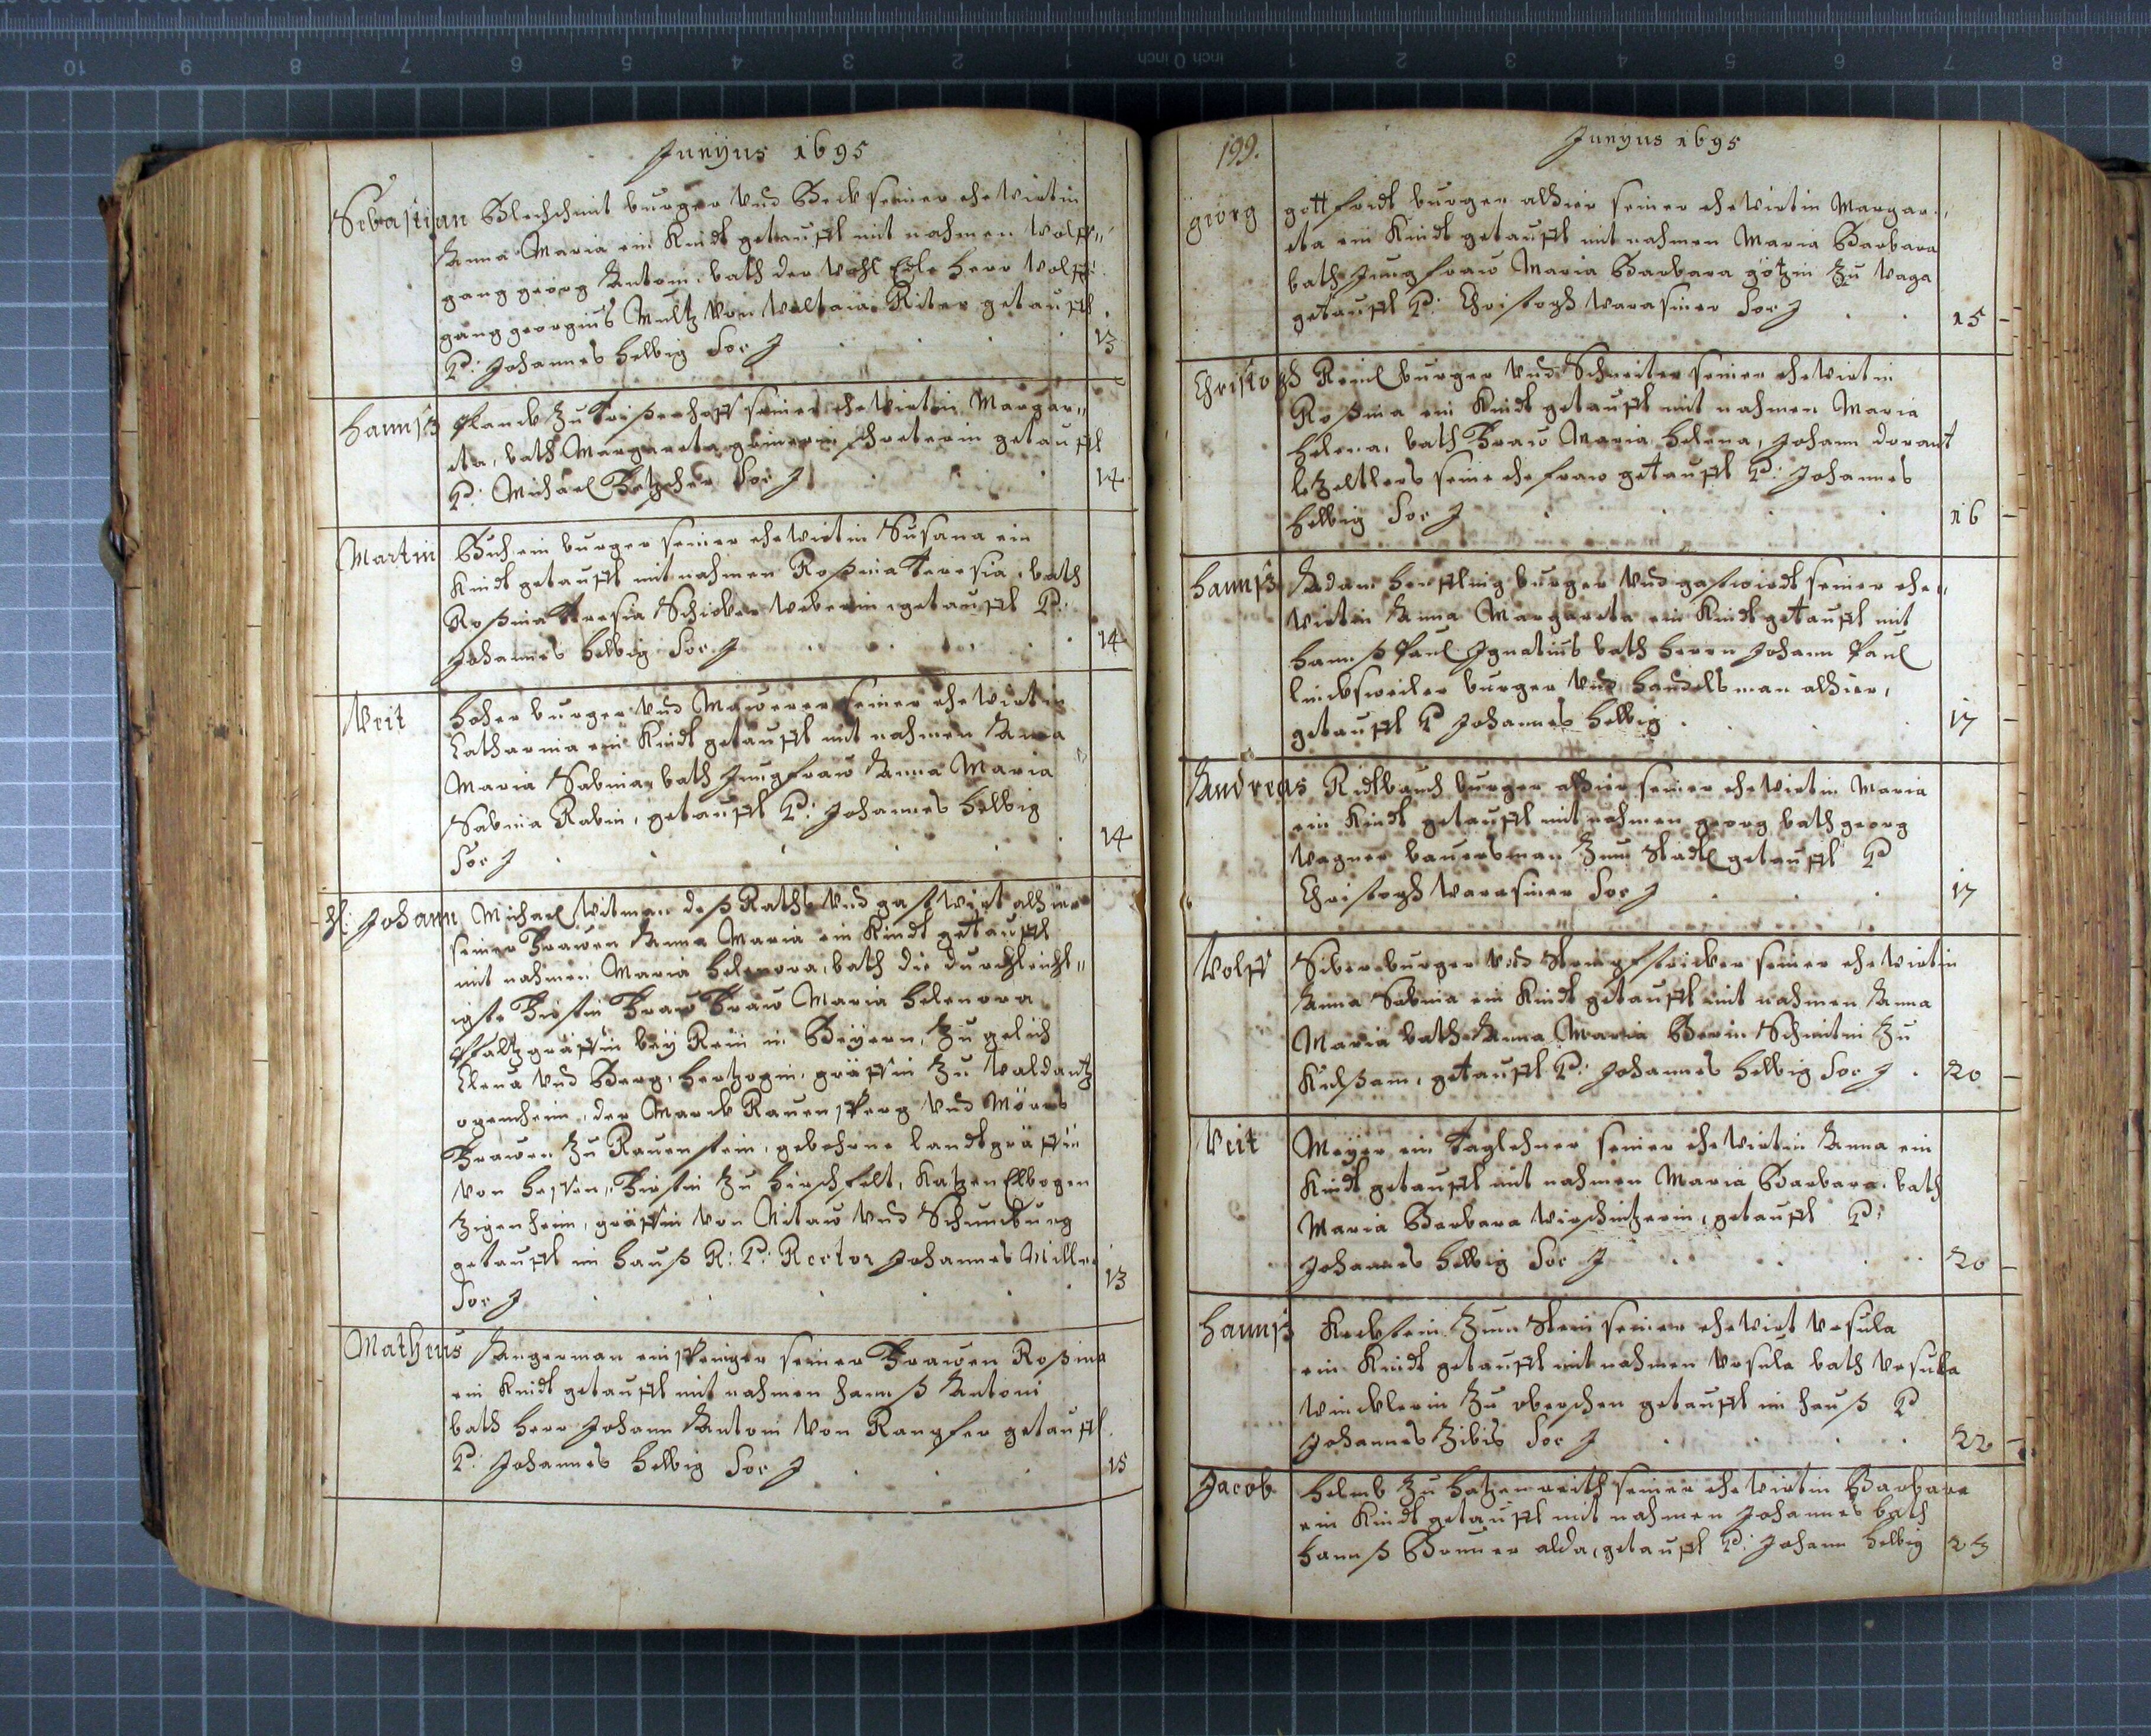 Junyus 1695
Sebastian Blechschmit burger vnd Beckh seiner ehewirtin
Anna Maria ein Kindt getaufft mit nahmen Wolff„
gang georg Antoni, bath der Wohl Edle herr Wolff„
gang georgius Multz von Waltaw Riter getaufft
P: Johannes helbig Soc J 13
hannß Planck zu seiner ehewirtin Margar„
eta, bath Margareta getaufft
P: Michael Soc J 14
Martin ein burger seiner ehewirtin Susana ein
Kindt getaufft mit nahmen Roßina Teresia, bath
Roßina Teresia getaufft P:
Johannes helbig Soc J 14
Veit burger vnd Mawerer seiner ehewirtin
Catharina ein Kindt getaufft mit nahmen Anna
Maria Sabina, bath Jungfraw Anna Maria
Sabina Rabin, getaufft P: Johannes helbig
Soc J 14
H: Johann Michael Witman deß Raths vnd gastwirt alhier
seiner Frawen Anna Maria ein Kindt getaufft
mit nahmen Maria helenora, bath die durchleicht„
igste Firstin Fraw Fraw Maria helenora
Pfaltzgräffin bey Rein in Beyern, zu gelich
Cleua vnd Berg, hertzogin, gräffin zu Waldantz
ogenheim, der Marck Rauensperg vnd Mörs
Frawen zu Rauenstein, gebohrne landtgräffin
von heßen, Firstin zu hirschfelt, Katzen Elbogen
Zigenheim, gräffin von Nitaw vnd Schumburg
getaufft im hauß R: P: Rector Johannes Miller
Soc J 13
Matheus Angerman ein seiner Frawen Roßina
ein Kindt getaufft mit nahmen hannß Antoni
bath herr Johann Antoni von getaufft
P: Johannes helbig Soc J 15
199.
Junyus 1695
giörg gottfridt burger alhier seiner ehewirtin Margar„
eta ein Kindt getaufft mit nahmen Maria Barbara
bath Jungfraw Maria Barbara götzin zu Waga
getaufft P: Christoph Warasiner Soc J 15
Christoph Reml burger vnd Schneiter seiner ehewirtin
Roßina ein Kindt getaufft mit nahmen Maria
helena, bath Fraw Maria helena, Johann
letzeltlers seine ehefraw getaufft P: Johannes
helbig Soc J 16
hannß Adam burger vnd gastwirdt seiner ehe„
wirtin Anna Margareta ein Kindt getaufft mit
hannß Paul Ignatius bath herrn Johann Paul
burger vnd handelsman alhier,
getaufft P Johannes helbig 17
Andreas burger alhier seiner ehewirtin Maria
ein Kindt getaufft mit nahmen georg bath georg
Wagner bauersman zum Stadl getaufft P
Christoph Warasiner Soc J 17
Wolff burger vnd seiner ehewirtin
Anna Sabina ein Kindt getaufft mit nahmen Anna
Maria bath Anna Maria Schmitin zu
getaufft P: Johannes helbig Soc J 20
Veit Meyer ein Taglehner seiner ehewirtin Anna ein
Kindt getaufft mit nahmen Maria Barbara, bath
Maria Barbara getaufft P:
Johannes helbig Soc J 20
hannß zum Stein seiner ehewirt Vrsula
ein Kindt getaufft mit nahmen Vrsula bath Vrsula
Wincklerin zu getaufft im hauß P
Johannes Zibis Soc J 22
Jacob helmb zu hatzenreith seiner ehewirtin Barbara
ein Kindt getaufft mit nahmen Johannes bath
hannß alda, getaufft P: Johann helbig 23